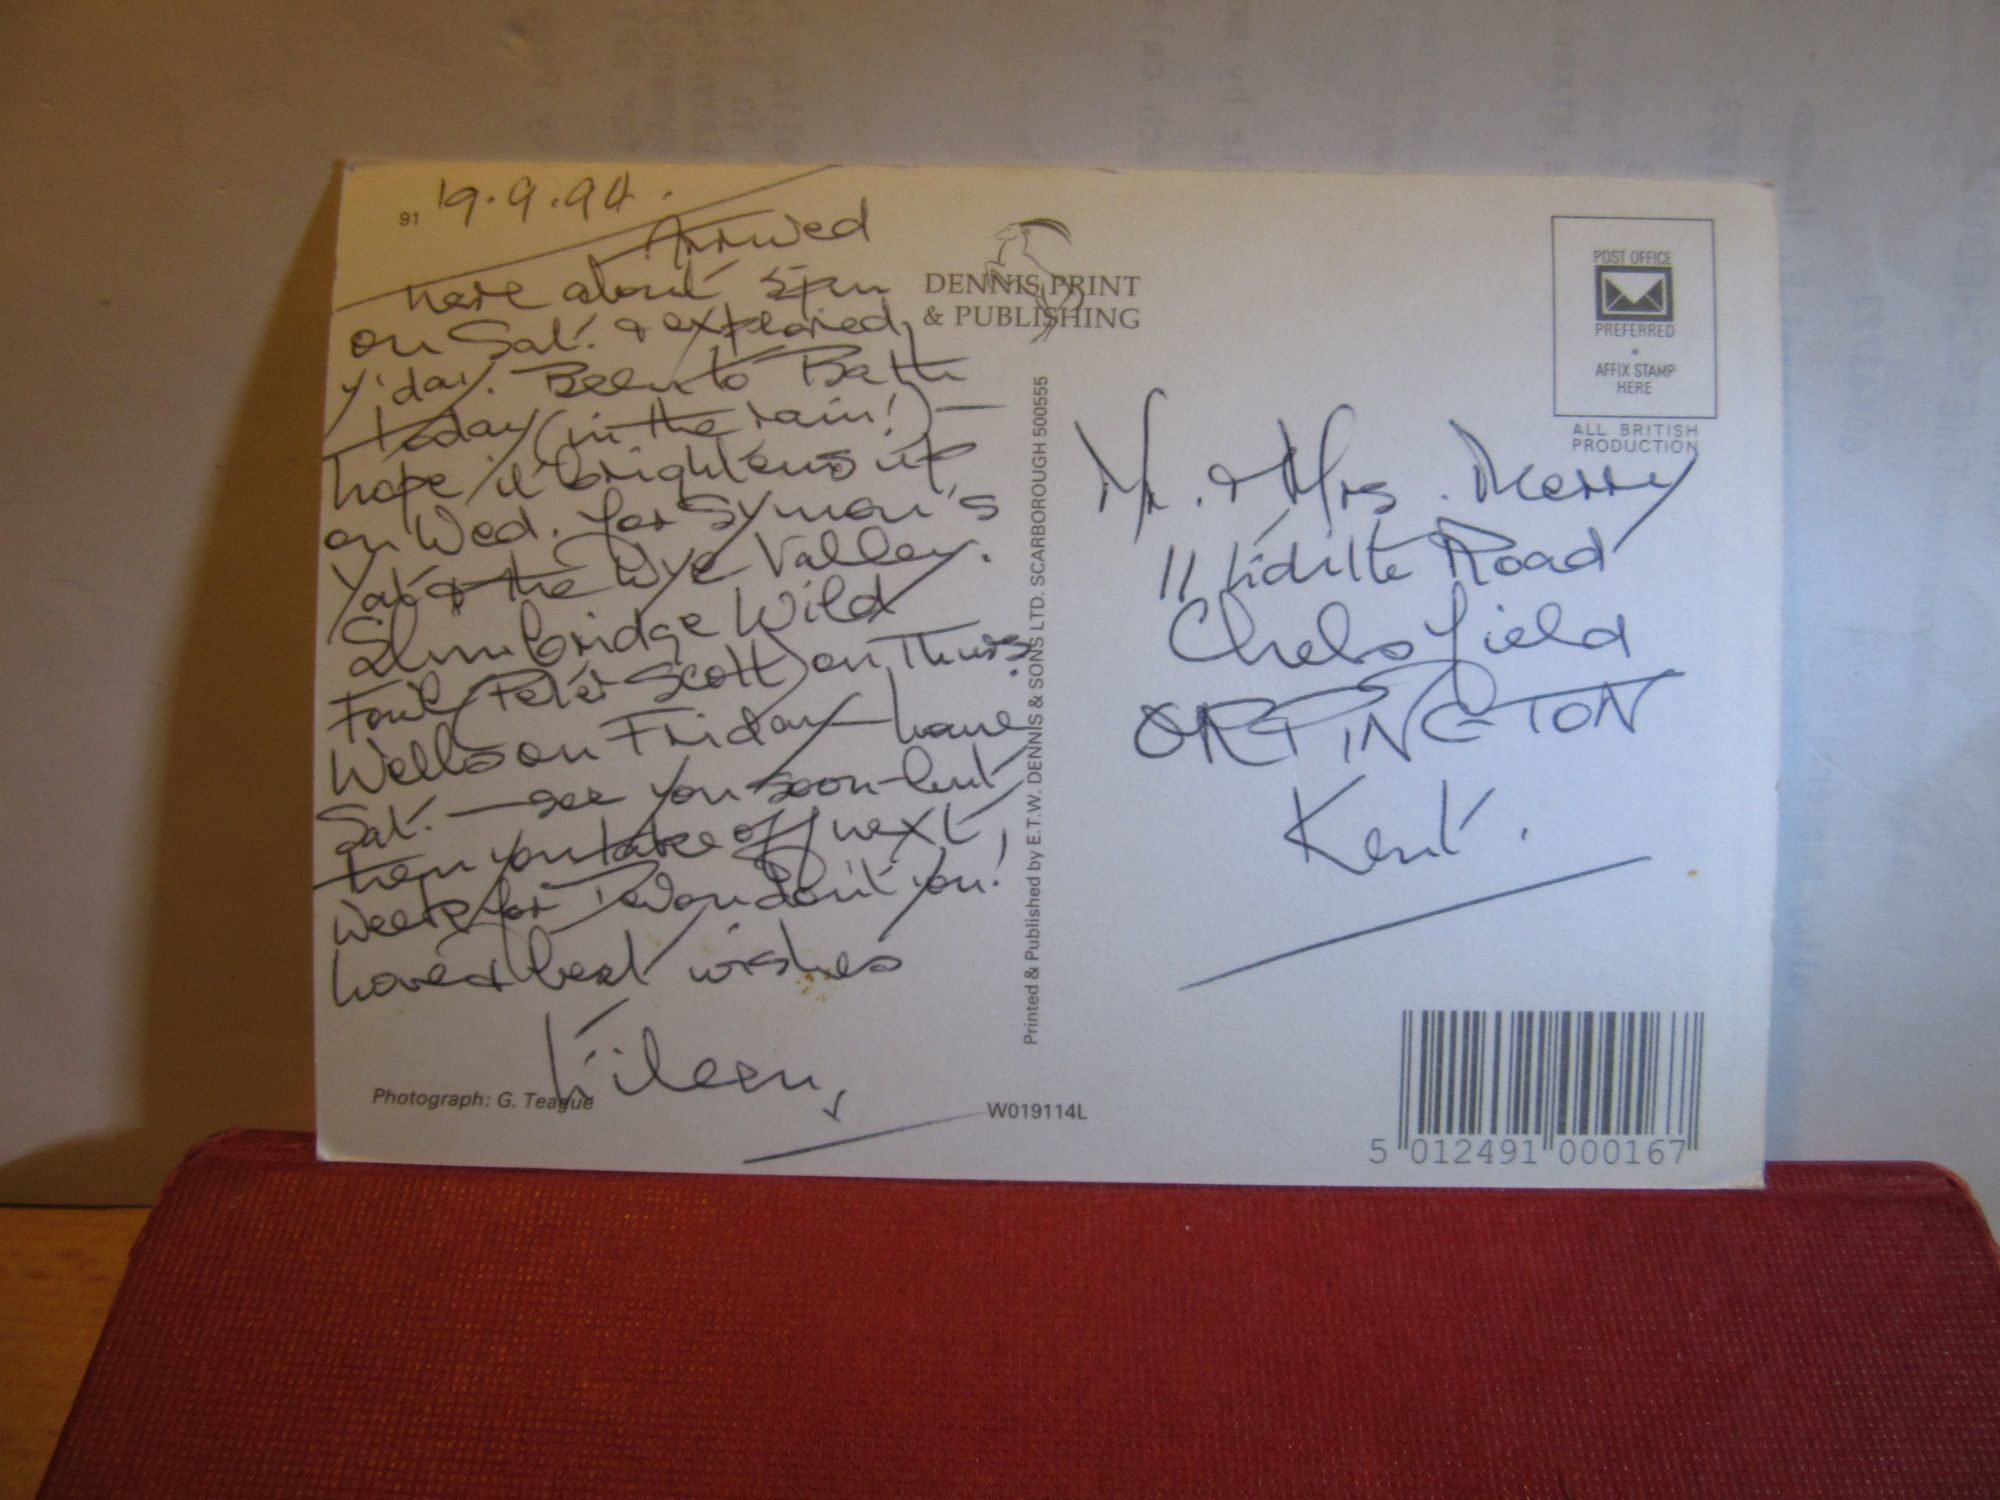 91 19.9.94.
Arrived
here about 5pm
on Sat. & explored
y'day. Been to Bath
today (in the rain!) —
hope it brightens up
on Wed. for Symon's
Yat & the Wye Valley.
Slimbridge Wild
Fowl (Peter Scott) on Thurs.
Wells on Friday — home
Sat. — see you soon — but
then you take off next
week for Devon don't you!
Love & best wishes
Eileen
Photograph: G. Teague
W019114L
DENNIS PRINT
& PUBLISHING
Printed & Published by E.T.W. DENNIS & SONS LTD. SCARBOROUGH 500555
POST OFFICE
PREFERRED
*
AFFIX STAMP
HERE
ALL BRITISH
PRODUCTION
Mr. & Mrs. Merry
11 Road
Chelsfield
ORPINGTON
Kent.
5 012491 000167